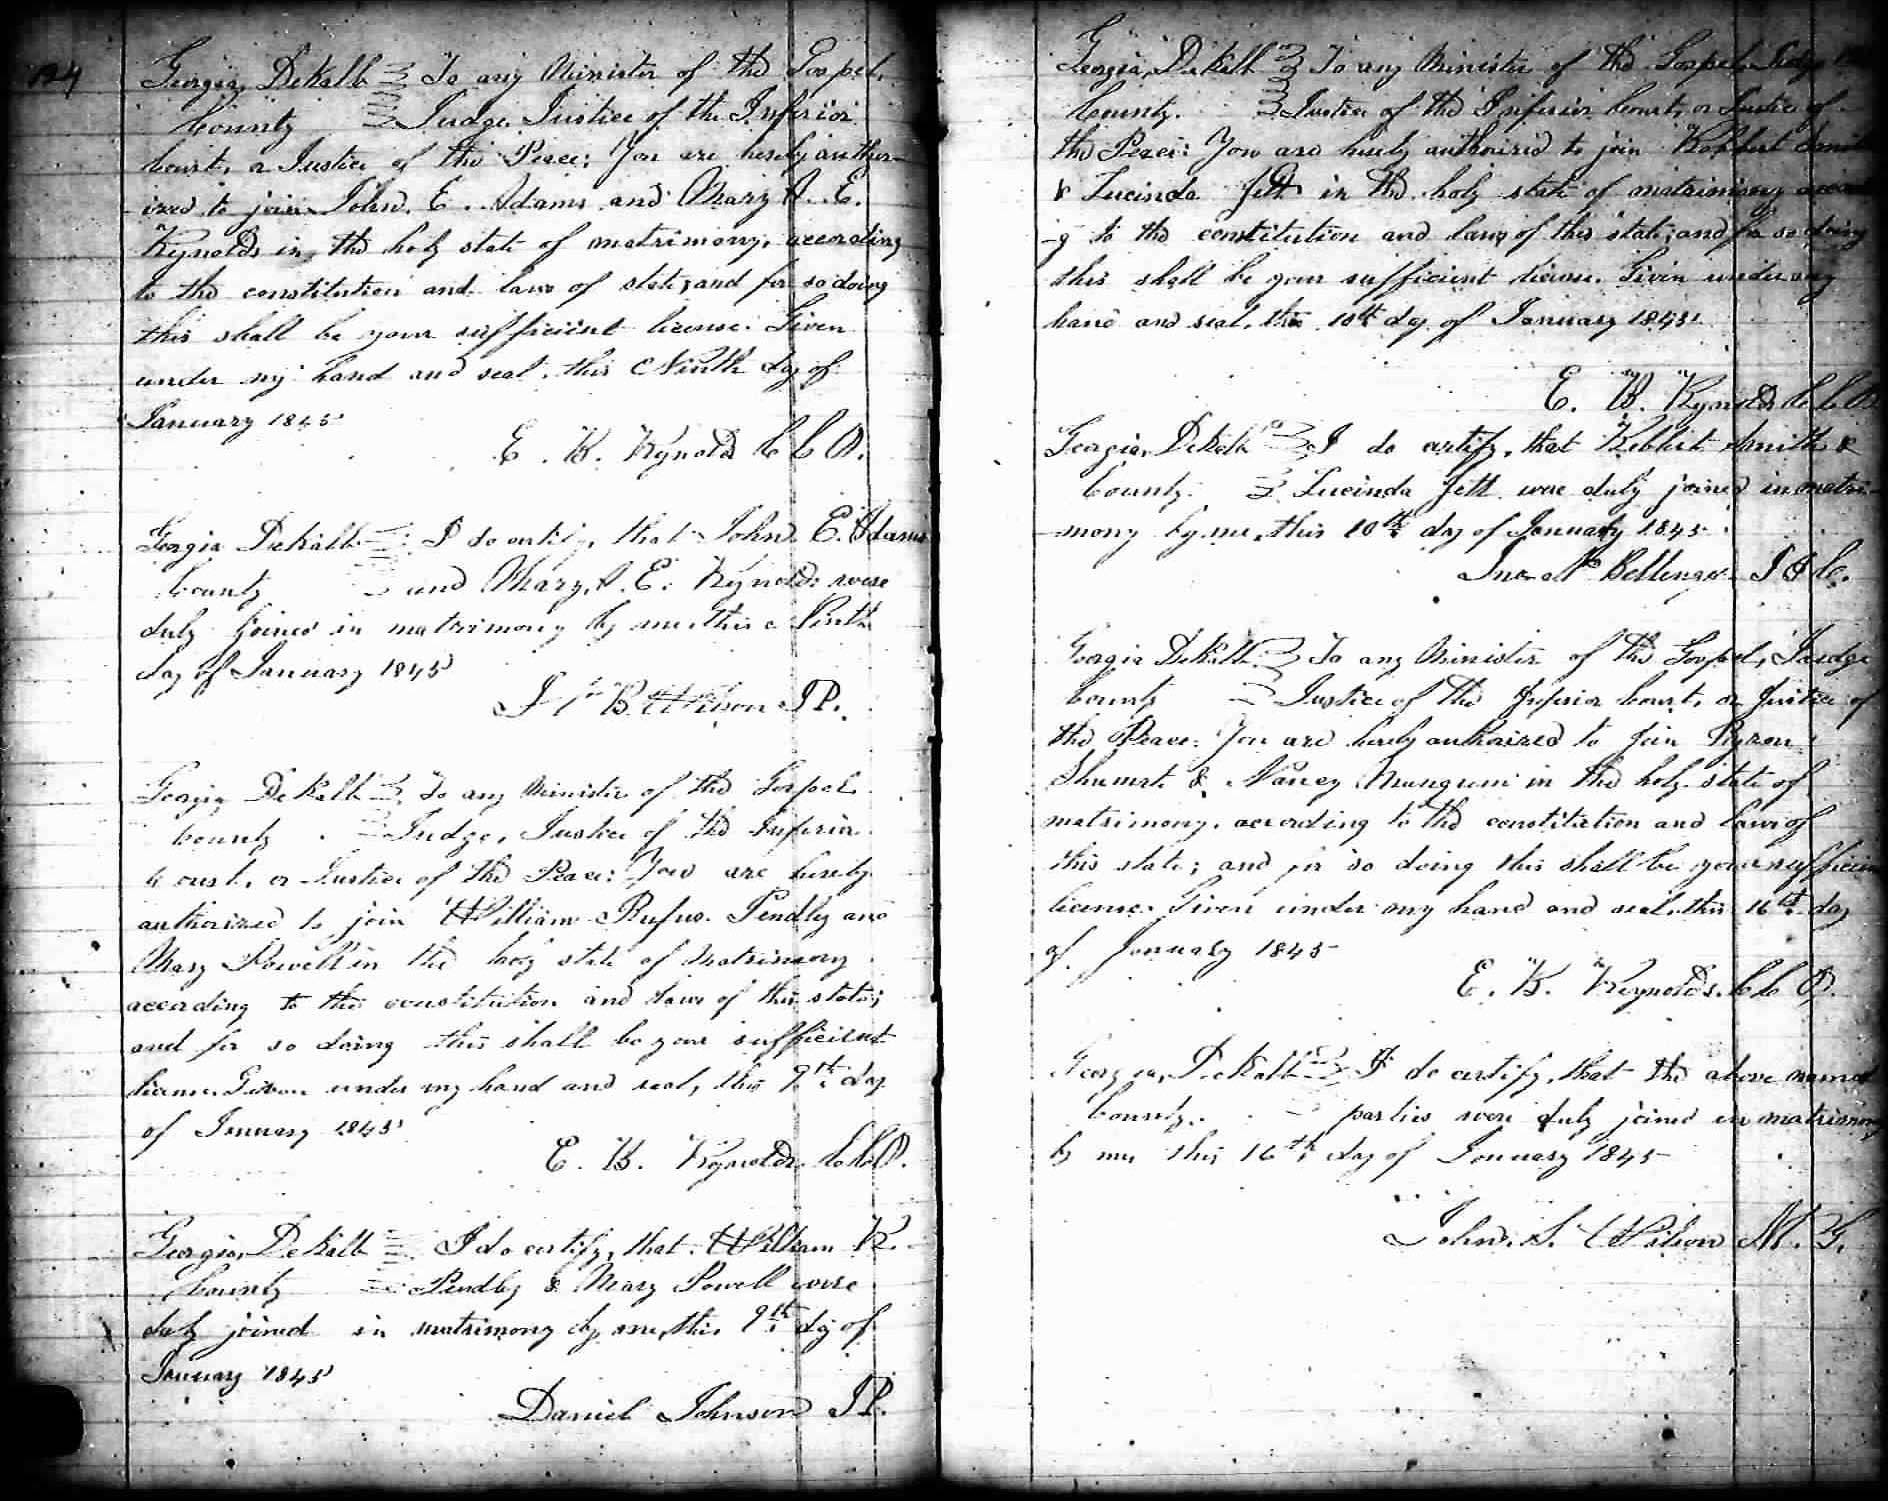 124
Georgia, DeKalb To any Minister of the Gospel,
County Judge, Justice of the Inferior
Court, or Justice of the Peace: You are hereby author-
ized to join John. E. Adams and Mary A. E.
Reynolds in the holy state of matrimony, according
to the constitution and laws of state; and for so doing
this shall be your sufficient license. Given
under my hand and seal, this Ninth day of
January 1845
E. B. Reynolds C C O.
Georgia DeKalb I do certify, that John. E. Adams
County and Mary A. E. Reynolds were
duly joined in matrimony by me this Ninth
day of January 1845
B. Wilson JP.
Georgia DeKalb To any Minister of the Gospel
County Judge, Justice of the Inferior
Court, or Justice of the Peace: You are hereby
authorized to join William Rufus Pendly and
Mary Powell in the holy state of matrimony
according to the constitution and laws of this state;
and for so doing this shall be your sufficient
license. Given under my hand and seal, this 9th day
of January 1845
E. B. Reynolds. C.C.O.
Georgia, DeKalb I do certify, that William R.
County Pendly & Mary Powell were
duly joined in matrimony by me, this 9th day of
January 1845
Daniel Johnson JP.
Georgia, DeKalb To any Minister of the Gospel, Judge
County. Justice of the Inferior Court, or Justice of
the Peace: You are hereby authorized to join Robbert Smith
& Lucinda Jett in the holy state of matrimony
-g to the constitution and laws of this state; and for so doing
this shall be your sufficient license. Given under my
hand and seal, this 10th day of January 1845
E. B. Reynolds C C O
Georgia, DeKalb I do certify, that Robbert Smith &
County. Lucinda Jett were duly joined in matri-
mony by me, this 10th day of January 1845
Bellenger J I C.
Georgia DeKalb To any Minister of the Gospel, Judge
County Justice of the Inferior Court, or Justice of
the Peace: You are hereby authorized to join
Shumate & Nancy Mangum in the holy state of
matrimony, according to the constitution and laws of
this state; and for so doing this shall be your sufficien
license. Given under my hand and seal, this 16th day
of January 1845
E. B. Reynolds. C C O.
Georgia, DeKalb I do certify, that the above named
County. parties were duly joined in matrimony
by me this 16th day of January 1845
John. S. Wilson M. G.